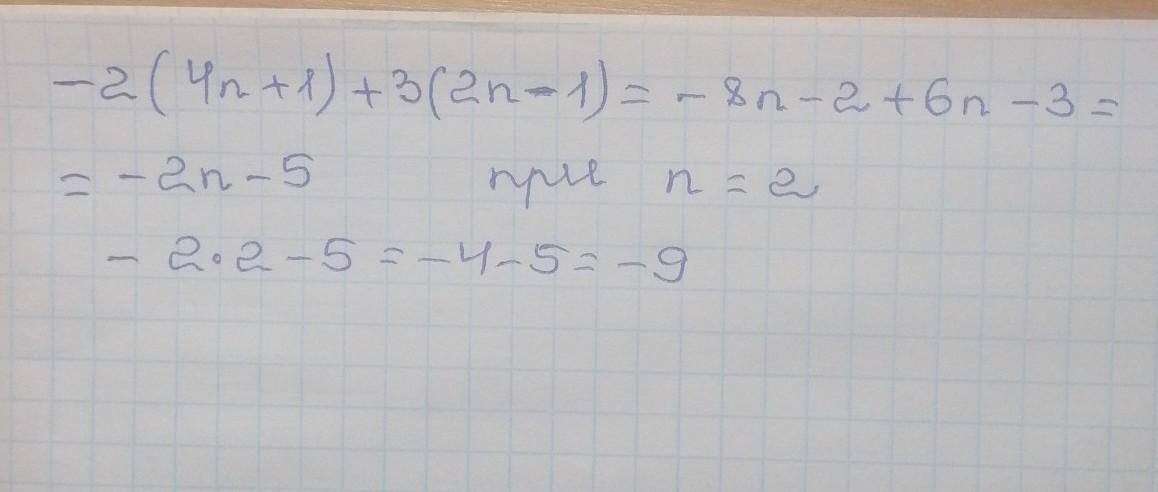 -2(4n+1)+3(2n-1)= -8n-2+6n-3=
= -2n-5 при n=2
-2·2-5=-4-5=-9